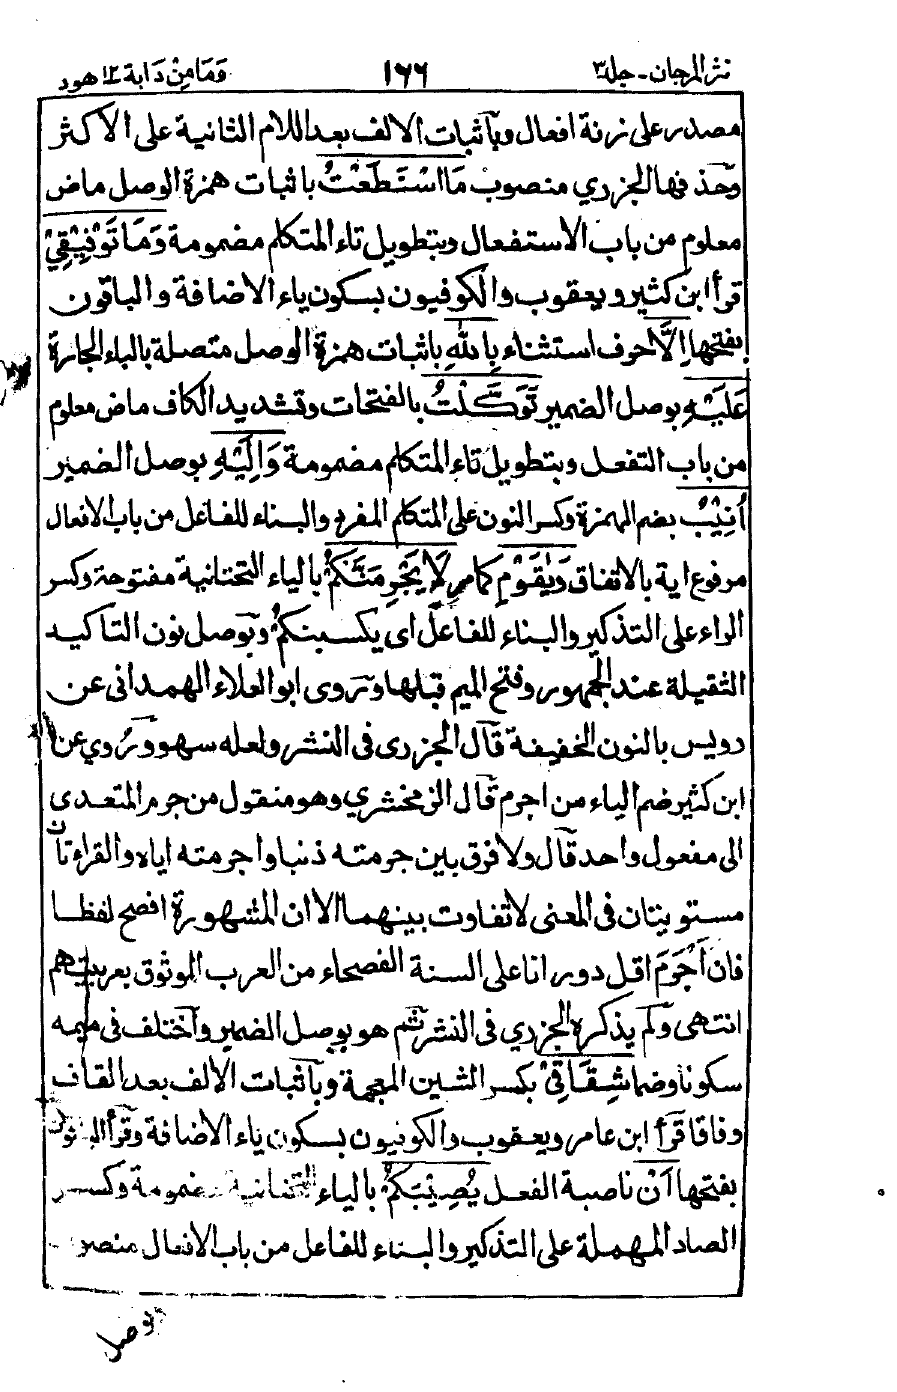 نثر المرجان - جلد ٣
١٦٦
وَمَا مِنْ دَابة ١٢ هود
مصدر على زنة افعال وبآثبات الالف بعد اللام الثانية على الاكثر
وحذفها الجزري منصوب مَا اسْتَطَعْتُ باثبات همزة الوصل ماض
معلوم من باب الاستفعال وبتطويل تاء المتكلم مضمومة وَمَا تَوْفِيْقِيْ
قرأ ابن كثير ويعقوب والكوفيون بسكون ياء الاضافة والباقون
بفتحها اِلَّا حرف استثناء بِاللهِ باثبات همزة الوصل متصلة بالباء الجارة
عَلَيْهِ بوصل الضمير تَوَكَّلْتُ بالفتحات وتشديد الكاف ماض معلوم
من باب التفعل وبتطويل تاء المتكلم مضمومة وَاِلَيْهِ بوصل الضمير
اُنِيْبُ بضم الهمزة وكسر النون على المتكلم المفرد والبناء للفاعل من باب الافعال
مرفوع اية بالاتفاق وَيٰقَوْمِ كما مر لَا يَجْرِمَنَّكُمْ بالياء التحتانية مفتوحة وكسر
الراء على التذكير والبناء للفاعل اى يكسبنكم وبوصل نون التاكيد
الثقيلة عند الجمهور وفتح الميم قبلها وروى ابو العلاء الهمدانى عن
رويس بالنون الخفيفة قال الجزرى فى النشر ولعله سهو وروي عن
ابن كثير ضم الياء من اجرم قال الزمخشري وهو منقول من جرم المتعدى
الى مفعول واحد قال ولا فرق بين جرمته ذنبا واجرمته اياه والقراءتان
مستويتان فى المعنى لا تفاوت بينهما الا ان المشهورة افصح لفظا
فان اَجْرَمَ اقل دورانا على السنة الفصحاء من العرب الموثوق بعربيتهم
انتهى ولم يذكره الجزري فى النشر ثم هو بوصل الضمير واختلف فى ميمه
سكونا وضما شِقَاقِيْ بكسر الشين المعجمة وبآثبات الالف بعد القاف
وفاقا قرأ ابن عامر ويعقوب والكوفيون بسكون ياء الاضافة وقرأ الباقون
بفتحها اَنْ ناصبة الفعل يُصِيْبَكُمْ بالياء التحتانية مضمومة وكسر
الصاد المهملة على التذكير والبناء للفاعل من باب الافعال منصوب
بوصل